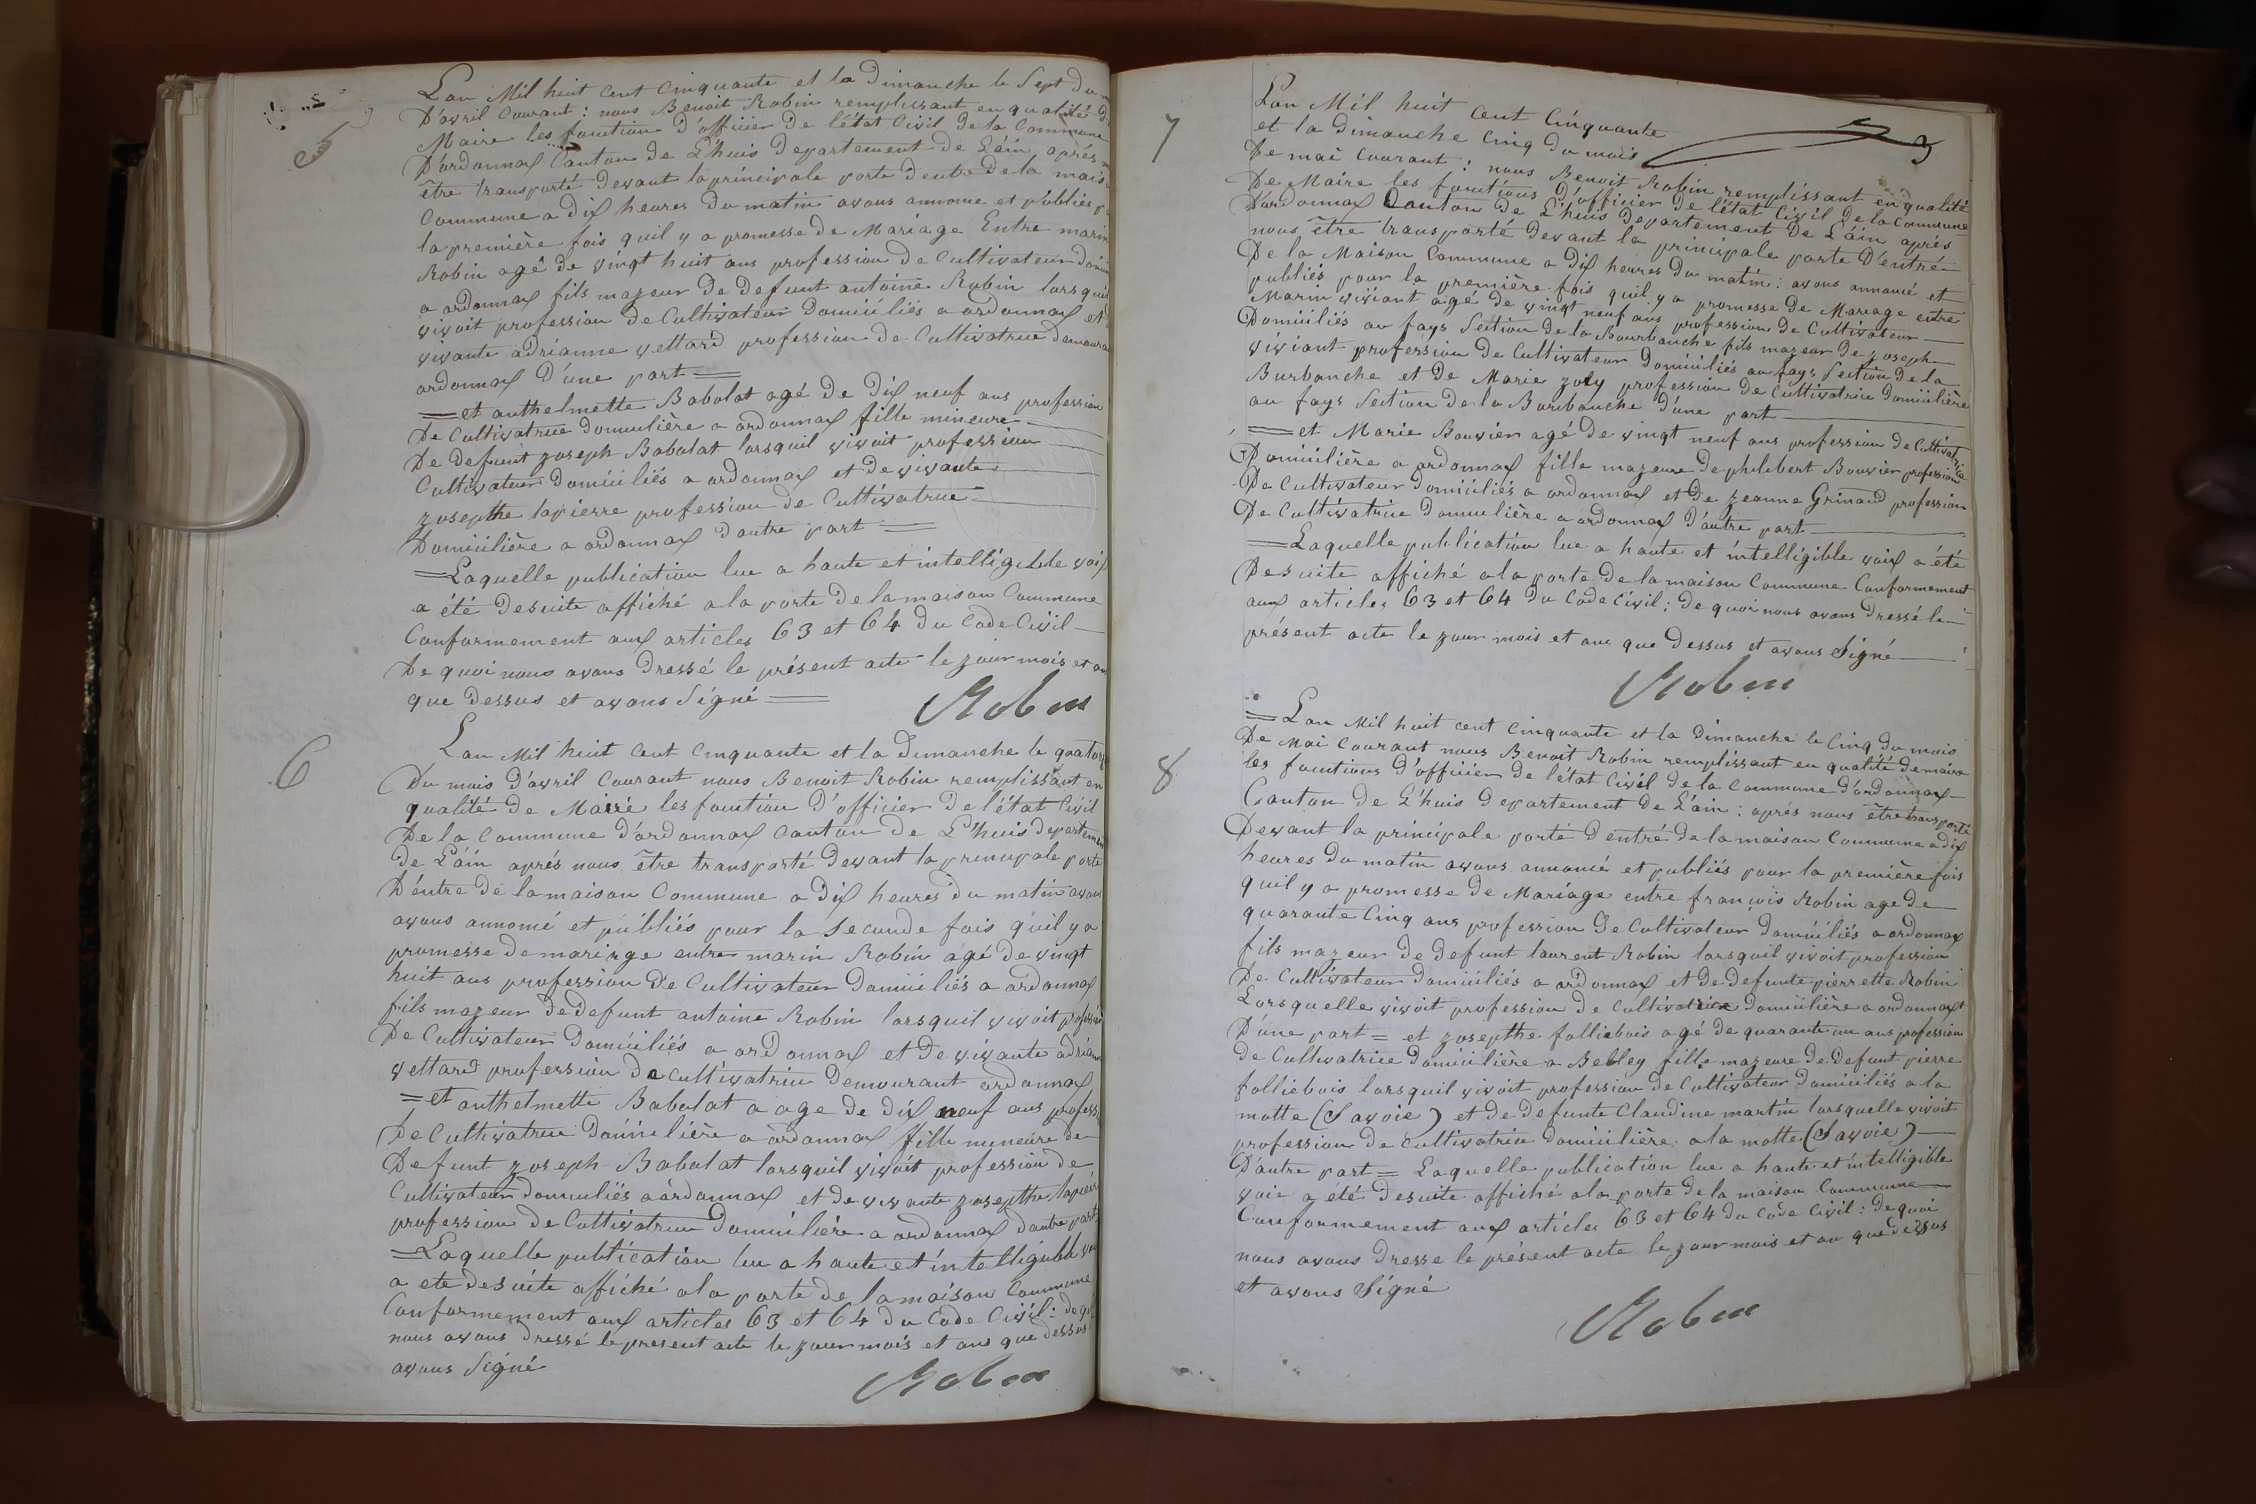 5
Lan Mil huit cent Cinquante et la Dimanche le Sept du
D'avril Courant : nous Benoit Robin remplissant en qualité
Maire les fonction d'officier De l'état Civil de la Commune
D'ordonnax Canton de L'huis Departement de L'áin aprés
être transporté devant la principale porte dentré de la mais
Commune a dix heures du matin avons annoncé et publiés
la première fois quil y a promesse de Mariage Entre marin
Robin agé de vingt huit ans profession de Cultivateur
a ordonnax fils mazeur de defunt antoine Robin lorsquil
vivoit profession de Cultivateur Domiciliés a ordonnax et
vivante adrianne vettard profession de Cultivatrice demeurant
ordonnax D'une part =
= et anthelmette Babolat agé de Dix neuf ans profession
De Cultivatrice Domicilière a ordonnax fille mineure
De defunt zoseph Babolat lorsquil vivoit profession
Cultivateur Domiciliés a ordonnax et de vivante
zosepthe lapierre profession de Cultivatrice
Domicilière a ordonnax Dautre part =
= Laquelle publication lue a haute et intelligible voix
a été desuite affiché a la porte De la maison Commune
Conformement aux articles 63 et 64 du Code Civil
De quoi nous avons dressé le présent acte le zour mois et an
que Dessus et avons Signé =
Robin
6
Lan Mil huit cent Cinquante et la Dimanche le quatorze
Du mois D'avril Courant nous Benoit Robin remplissant en
qualité de Mairé les fonction D'officier De l'état Civil
De la Commune d'ordonnax Canton de L'huis departement
de L'áin aprés nous être transporté devant la principale porte
D'éntre de la maison Commune a dix heures du matin avons
avons annoncé et publiés pour la seconde fois quil y a
promesse de mariage entre marin Robin agé de vingt
huit ans profession De Cultivateur Domiciliés a ordonnax
fils mazeur De defunt antoine Robin lorsquil vivoit profession
De Cultivateur Domiciliés a ordonnax et de vivante
vettard profession de Cultivatrice Demeurant ordonnax
= et anthelmette Babolat a agé de dix neuf ans
De Cultivatrice Domicilière a ordonnax fille mineure de
Defunt zoseph Babolat lorsquil vivoit profession de
Cultivateur Domiciliés a ordonnax et de vivante zosepthe
profession de Cultivatrice Domicilière a ordonnax dautre part
= Laquelle publication lue a haute et intelligible
a été desuite affiché a la porte de la maison Commune
Conformement aux articles 63 et 64 du Code Civil : de quoi
nous avons dressé le present acte le zour mois et ans que dessus
avons Signé
Robin
7
Lan Mil huit Cent Cinquante
et la Dimanche Cinq du mois
De mai Courant : nous Benoit Robin remplissant en qualité
De Maire les fonctions D'officier de l'état Civil de la Commune
D'ordonnax Canton de L'huis Departement de L'áin aprés
nous être transporté devant la principale porte D'entré
De la Maison Commune a dix heures du matin : avons annoncé et
publiés pour la première fois quil y a promesse de Mariage entre
Marin viviant agé de vingt neuf ans profession de Cultivateur
Domiciliés au fays Section de la Bourbanche fils mazeur de zoseph
viviant profession de Cultivateur Domiciliés au fays Section de la
Burbanche et de Marie zoly profession de Cultivatrice Domicilière
au fays Section de la Bourbanche d'une part
= et Marie Bouvier agé de vingt neuf ans profession de Cultivatrice
Domicilière a ordonnax fille mazeure de philibert Bouvier profession
De Cultivateur Domiciliés a ordonnax et de zeanne Grinand profession
De Cultivatrice Domicilière a ordonnax D'autre part
= Laquelle publication lue a haute et intelligible voix a été
Desuite affiché a la porte de la maison Commune Conformement
aux articles 63 et 64 du Code Civil ; de quoi nous avons Dressé le
présent acte le zour mois et ans que dessus et avons Signé
Robin
8
= Lan Mil huit cent Cinquante et la Dimanche le Cinq du mois
De Mai Courant nous Benoit Robin remplissant en qualité de maire
les fonctions d'officier de l'état Civil de la Commune d'ordonnax
Canton de L'huis Departement de L'ain : aprés nous être transporté
Devant la principale porté d'entré de la maison Commune a dix
heures du matin avons annoncé et publiés pour la première fois
quil y a promesse de Mariage entre françois Robin age de
quarante Cinq ans profession De Cultivateur Domiciliés a ordonnax
fils mazeur de defunt laurent Robin lorsquil vivoit profession
De Cultivateur Domiciliés a ordonnax et de defunte pierrette Robin
Lorsquelle vivoit profession de Cultivatrice Domicilière a ordonnax
D'une part = et zosepthe folliebois agé de quarante un ans profession
de Cultivatrice Domicilière a Belley fille mazeure de defunt pierre
folliebois lorsquil vivoit profession de Cultivateur Domiciliés a la
motte (Savoie) et de defunte Claudine martin lorsquelle vivoit
profession de Cultivatrice Domicilière a la motte (Savoie)
D'autre part = Laquelle publication lue a haute et intelligible
voie a été desuite affiché a la porte de la maison Commune
Conformement aux articles 63 et 64 du Code Civil : de quoi
nous avons dresse le présent acte le zour mois et an que dessus
et avons Signé
Robin